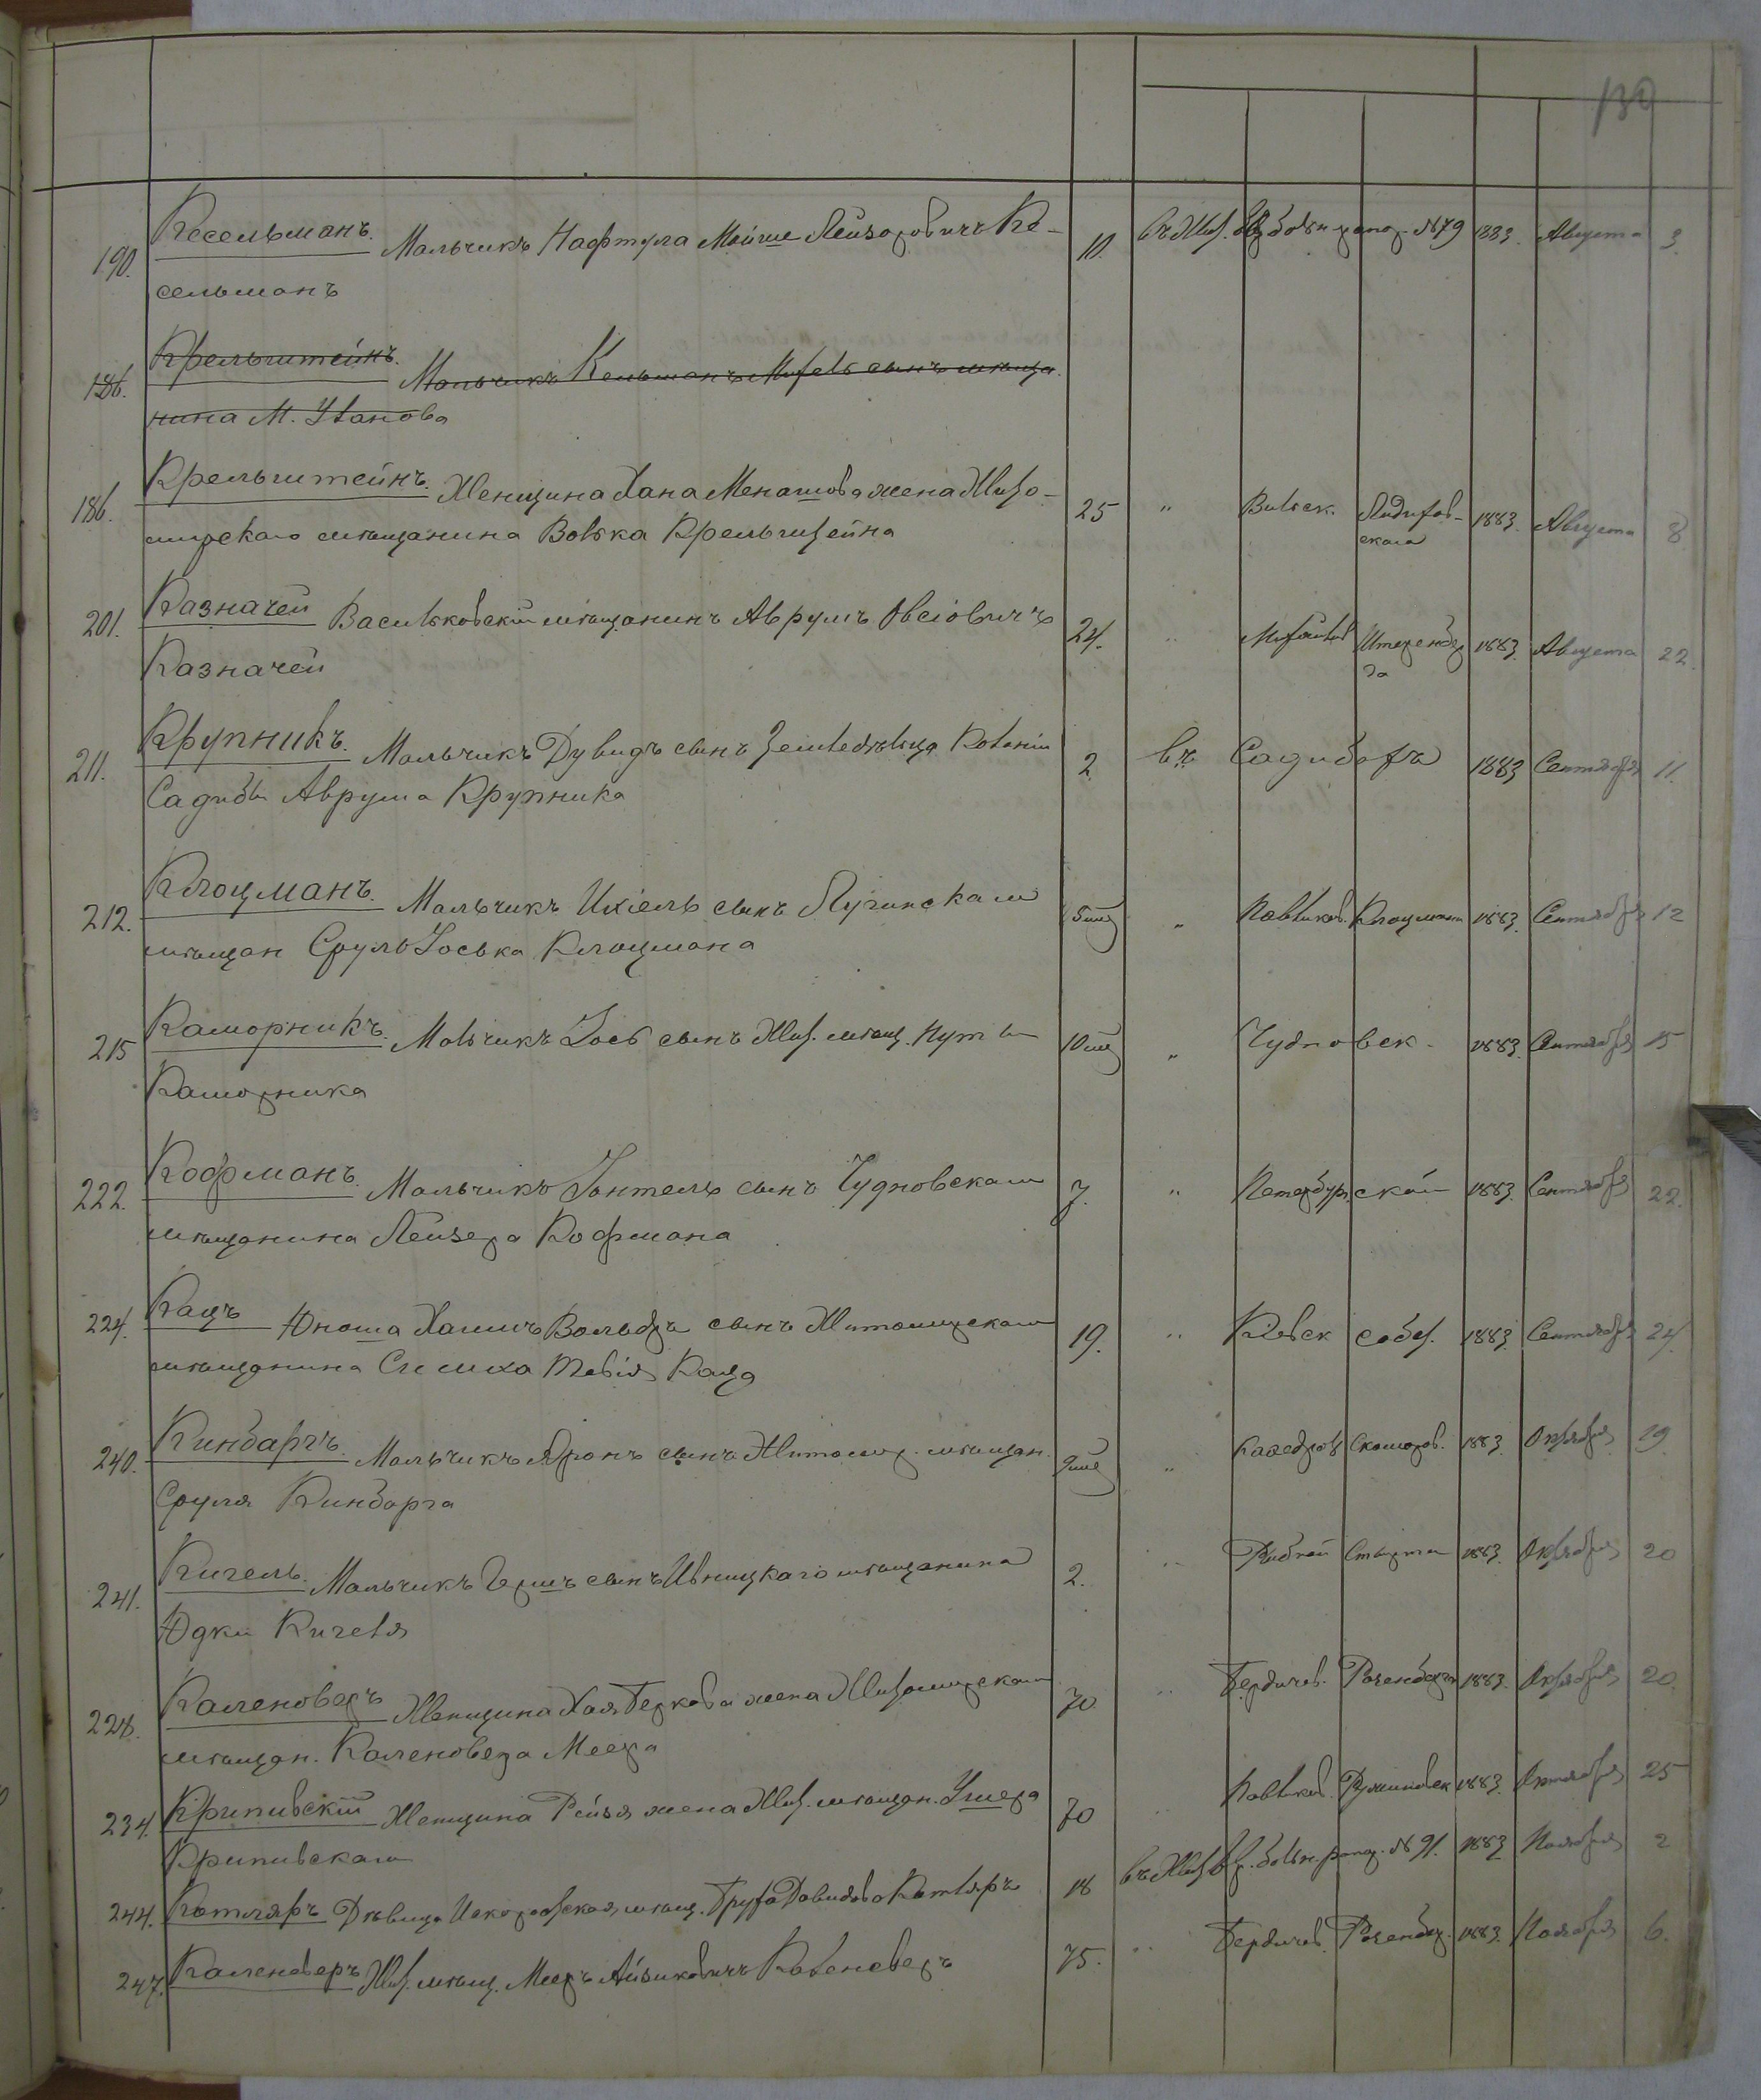 130
190. Кесельманъ. Мальчикъ Нафтула Мойше Лейзоровичъ Ке- 10. въ Жит. Ев. больн. рапор. №79 1883. Августа 3.
сельманъ
186. Крельштейнъ. Мальчикъ Кельманъ сынъ мѣща-
нина М. Уланова
186. Крельштейнъ. Женщина Хана Менашова жена Жито- 25 " Вильск. 1883. Августа 8
мирскаго мѣщанина Волька Крельштейна
201. Казначей Васильковскій мѣщанинъ Аврумъ Овсіовичъ 24. " 1883. Августа 22.
Казначей
211. Крупникъ. Мальчикъ Дувидъ сынъ Земледѣльца Колоніи 2 въ Садибахъ 1883 Сентября 11.
Садибы Аврума Крупника
212. Клоцманъ. Мальчикъ Ихіель сынъ Лугинскаго 5 мѣс " Павликов. Клоцмана 1883. Сентября 12
мѣщан Сруль Іоська Клоцмана
215 Каморникъ. Мальчикъ Іось сынъ Жит. мѣщ. Нуты 10 мѣс " Чудновск. 1883. Сентября 15
Каморника
222. Кофманъ. Мальчикъ Іонтель сынъ Чудновскаго 7. " Петербургской 1883. Сентября 22.
мѣщанина Лейзера Кофмана
224. Кацъ Юноша Хаимъ Вольфъ сынъ Житомирскаго 19. " Кіевск собст. 1883. Сентября 24.
мѣщанина Симха Тевія Каца
240. Кинбаргъ. Мальчикъ Аронъ сынъ Житомир. мѣщан. 9 мѣс " Каѳедров Скоморов. 1883. Октября 19.
Сруля Кинбарга
241. Кигель. Мальчикъ Гершъ сынъ Ивницкаго мѣщанина 2. " Рибной 1883. Октября 20
Юдки Кигеля
228. Каленоверъ Женщина Хая Беркова жена Житомирскаго 70 " Бердичев. Розенберга 1883. Октября 20.
мѣщан. Каленовера Меера
234. Крипивскій Женщина Рейзя жена Жит. мѣщан. Ушера 70 " Павликов. 1883. Октября 25
Крипивскаго
244. Котляръ Дѣвица Искоростская мѣщ. Давидова Котляръ 18 въ Жит. Ев. больн. рапор. №91. 1883 Ноября 2
247. Каленоверъ Жит. мѣщ. Мееръ Айзиковичъ Каленоверъ 75. " Бердичев. Розенбер. 1883. Ноября 6.